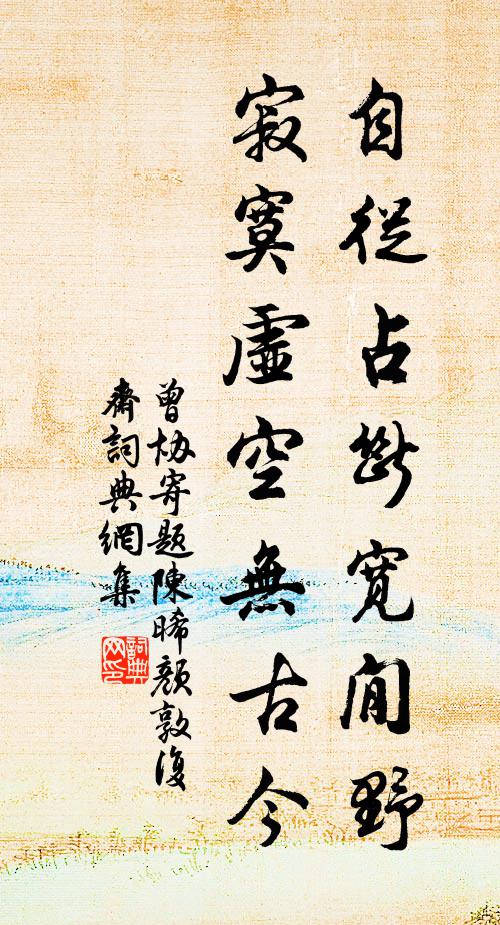 自從占斷寬閒野
寂寞虛空無古今
曾協寄題陳晞顏敦復
齋詞典網集
詞典網印